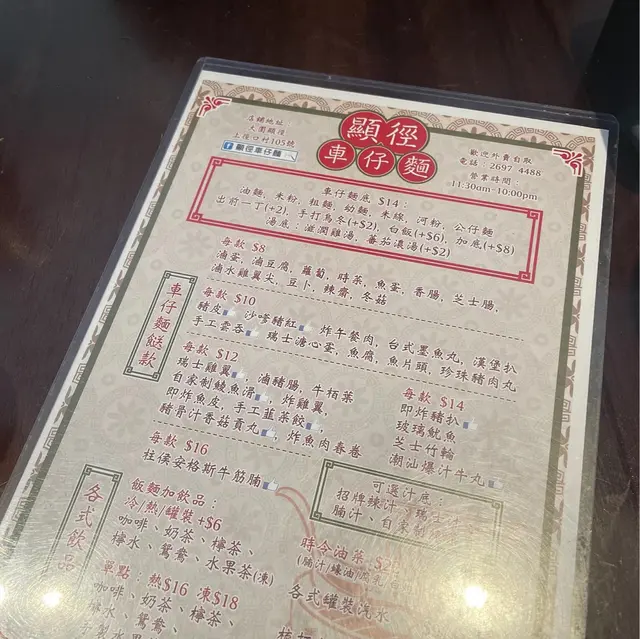 店鋪地址
大圍顯徑
上徑口村105號
顯徑車仔麵
顯徑
車仔麵
歡迎外賣自取
電話：2697 4488
營業時間：
11:30am-10:00pm
車仔麵底 $14：
油麵、米粉、粗麵、幼麵、米線、河粉、公仔麵
出前一丁(+2)、手打烏冬(+$2)、白飯(+$6)、加底(+$8)
湯底：滋潤雞湯、蕃茄濃湯(+$2)
車仔麵餸款
每款 $8
滷蛋、滷豆腐、蘿蔔、時菜、魚蛋、香腸、芝士腸、
滷水雞翼尖、豆卜、辣齋、冬菇
每款 $10
豬皮、沙嗲豬紅、炸午餐肉、台式墨魚丸、漢堡扒
手工雲吞、瑞士溏心蛋、魚腐、魚片頭、珍珠豬肉丸
每款 $12
瑞士雞翼、滷豬腸、牛栢葉
自家制鯪魚滑、炸雞翼、
即炸魚皮、手工韮菜餃、
豬骨汁香菇貢丸、炸魚肉春卷
每款 $14
即炸豬扒
玻璃魷魚
芝士竹輪
潮汕爆汁牛丸
每款 $16
柱侯安格斯牛筋腩
可選汁底：
招牌辣汁、瑞
腩汁、自家制
各式飲品
飯麵加飲品：
冷/熱/罐裝 +$6
咖啡、奶茶、檸茶、
檸水、鴛鴦、水果茶(凍)
單點：熱$16 凍$18
咖啡、奶茶、檸茶、
檸水、鴛鴦、
時令油菜
各式罐裝汽水